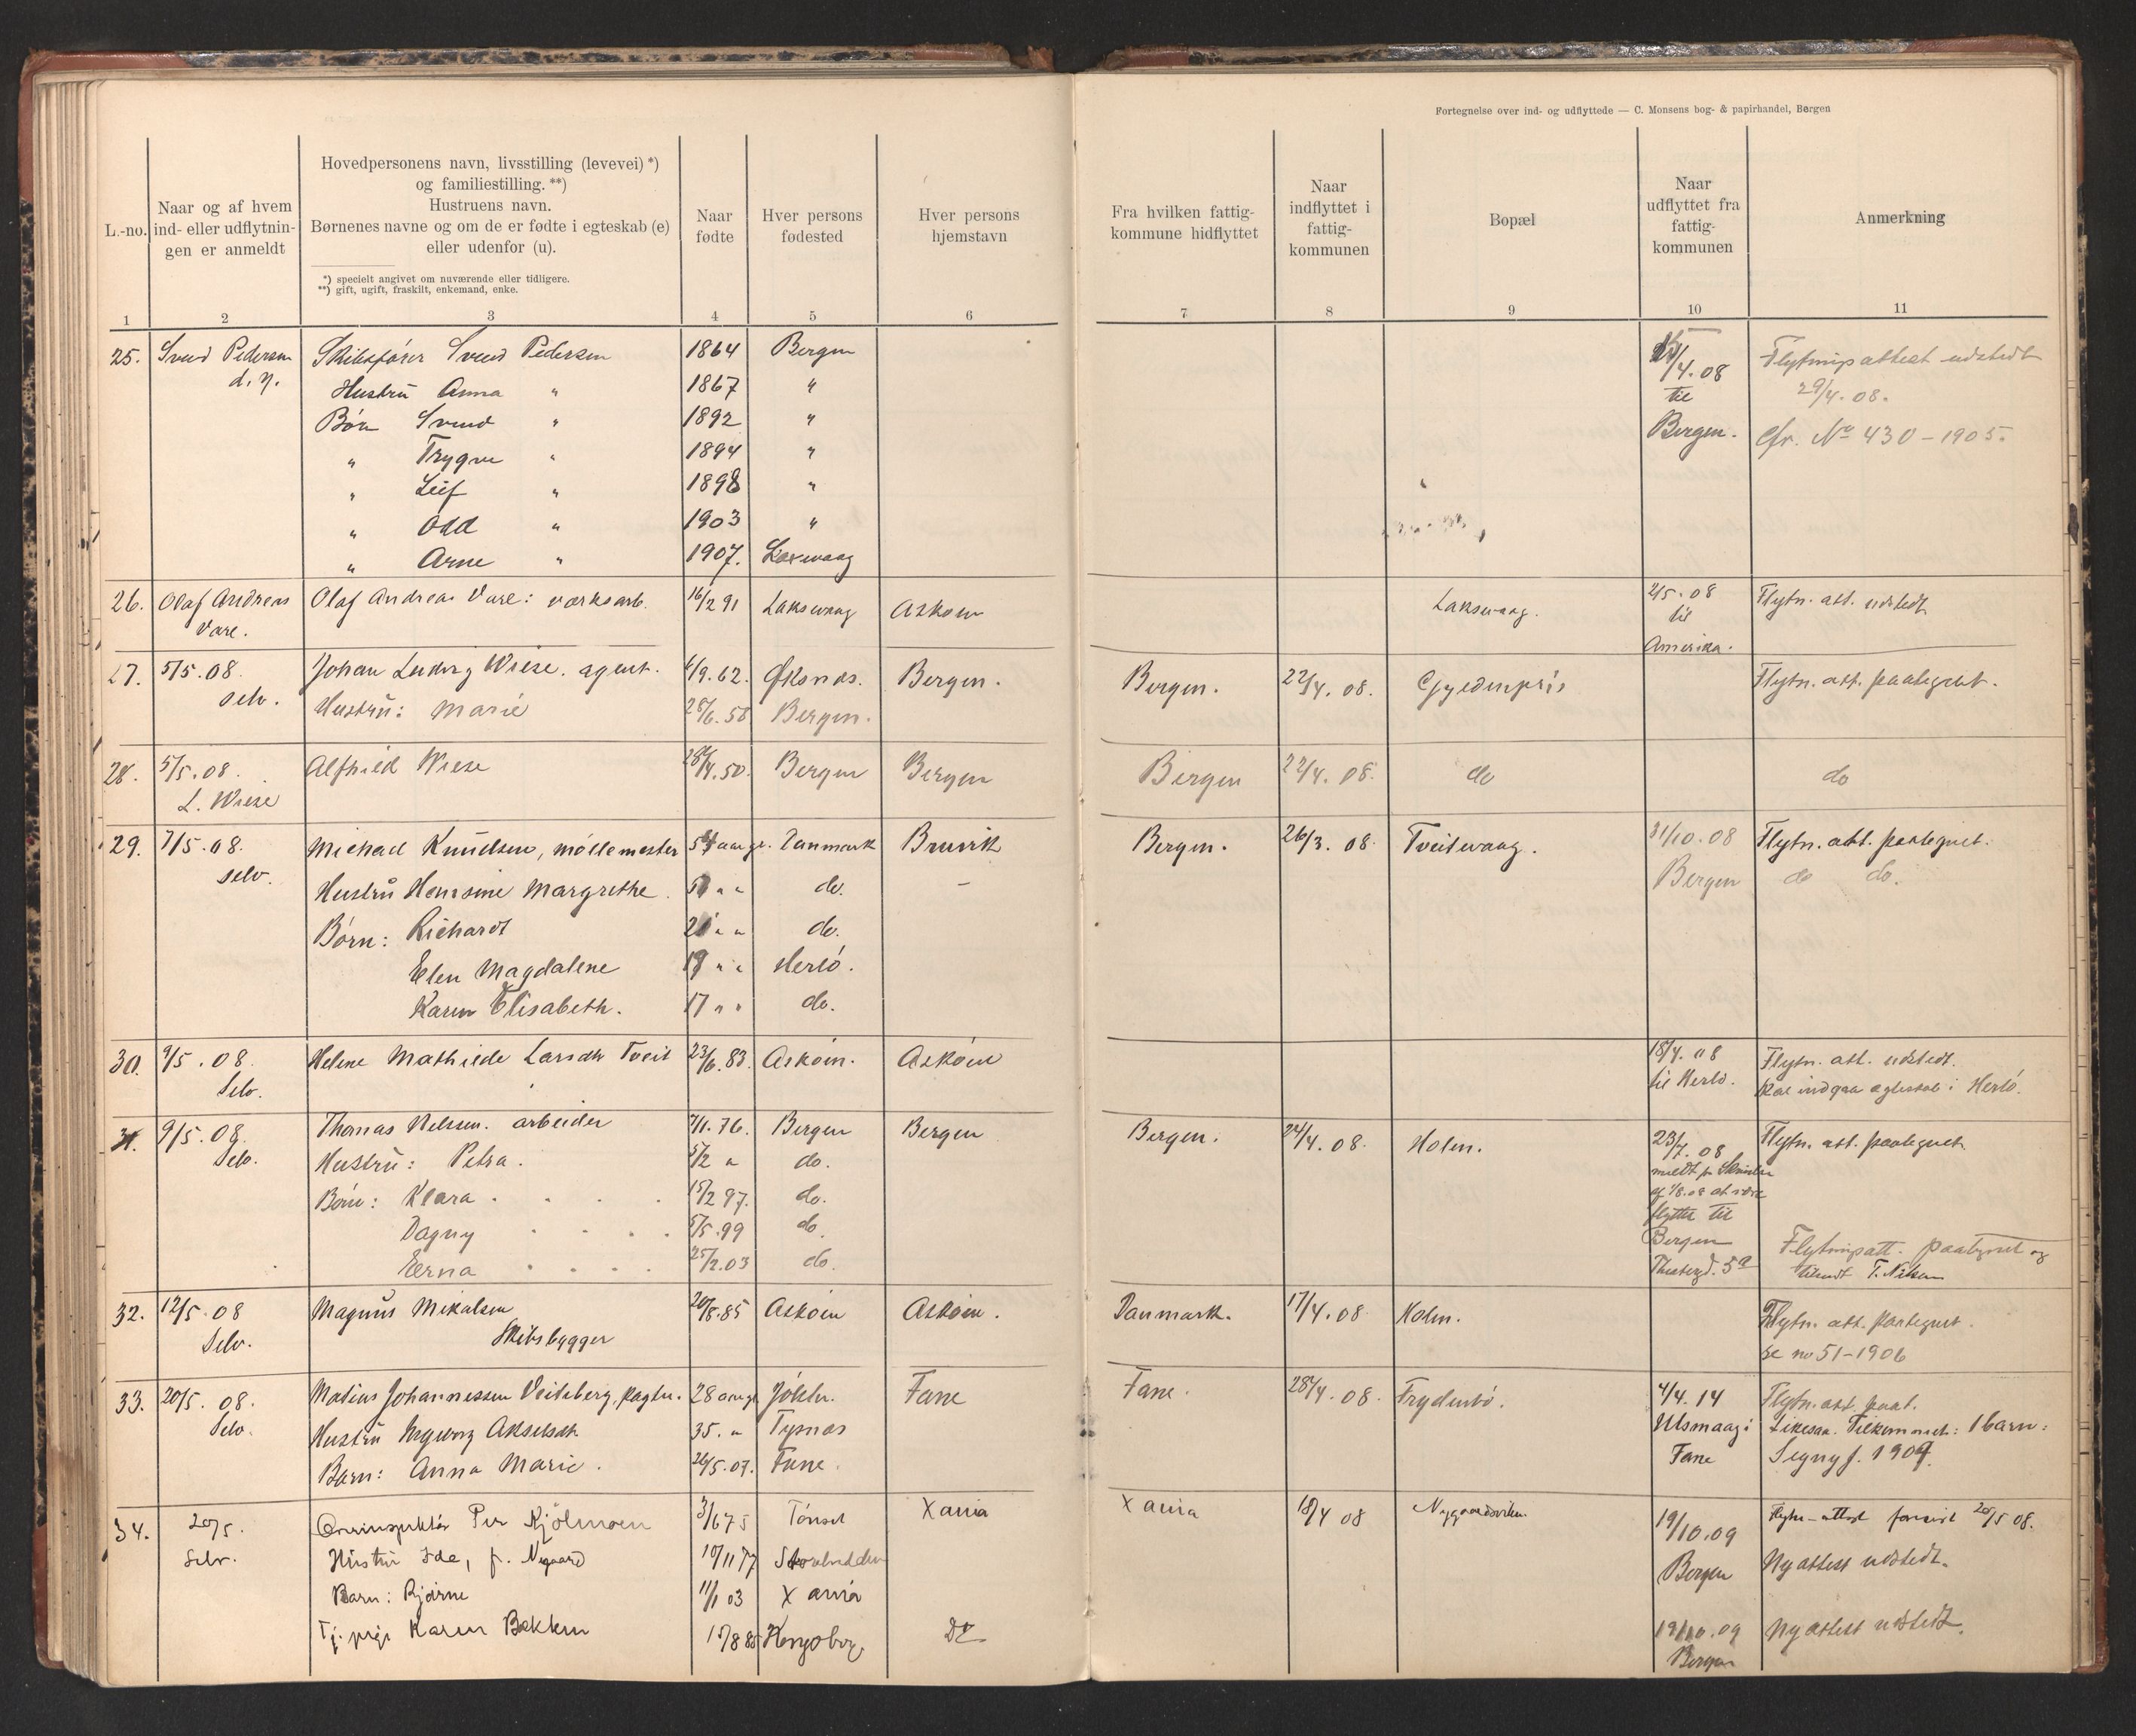 Fortegnelse over ind- og udflyttede — C. Monsens bog- & papirhandel, Bergen
L.-no.
Naar og af hvem
ind- eller udflytnin-
gen er anmeldt
Hovedpersonens navn, livsstilling (levevei) *)
og familiestilling. **)
Hustruens navn.
Børnenes navne og om de er fødte i egteskab (e)
eller udenfor (u).
*) specielt angivet om nuværende eller tidligere.
**) gift, ugift, fraskilt, enkemand, enke.
Naar
fødte
Hver persons
fødested
Hver persons
hjemstavn
Fra hvilken fattig-
kommune hidflyttet
Naar
indflyttet i
fattig-
kommunen
Bopæl
Naar
udflyttet fra
fattig-
kommunen
Anmerkning
1 2 3 4 5 6 7 8 9 10 11
25. Svend Pedersen Skibsfører Svend Pedersen 1864 Bergen /4.08 Flytningsattest udstedt
Hustru Anna " 1867 " til 29/4.08.
Børn Svend " 1892 " Bergen. cfr. No 430-1905.
" Trygve " 1894 "
" Leif " 1898 "
" Odd " 1903 "
" Arne " 1907. Laxevaag
26. Olaf Andreas Olaf Andreas Vare: værksarb. 16/2 91 Laksevaag Askøen Laksevaag. 2/5.08 Flytn. att. udstedt
Vare. til
Amerika.
27. 5/5.08. Johan Ludvig Wiese. agent. /9.62. Øksnes. Bergen. Bergen. 22/4.08. Gyldenpris Flytn. att. paategnet.
selv. Hustru: Marie 28/6.58 Bergen.
28. 5/5.08. Alfhild Wiese 28/4.50. Bergen Bergen Bergen 22/4.08. do do
L. Wiese
29. 7/5.08. Michael Knudsen, møllemester aar gl. Danmark Bruvik Bergen. 26/3.08. Tveitevaag. 31/10.08 Flytn. att. paategnet.
selv. Hustru Margrethe. " " do. – Bergen do do.
Børn: Richardt " " do.
Elen Magdalene 19 " " Herlø.
Karen Elisabeth. 17 " " do.
30. 9/5.08. Helene Mathilde Larsdtr Tveit 23/6.83. Askøen. Askøen 18/4.08 Flytn. att. udstedt.
Selv. til Herlø. skal indgaa ægteskab i Herlø.
31. 9/5.08. Thomas Nelssen. arbeider 7/1.76. Bergen Bergen Bergen. 24/4.08. Holen. 23/7.08 Flytn. att. paategnet.
Selv. Hustru: Petra. 5/2 " do. meldt pr
Børn: Klara . . . . 15/2 97. do. at være
Dagny . . . . 5/5.99 do. flyttet til
Erna . . . . 25/2.03 do. Bergen Flytningsatt. paategnet og
tilsendt T. Nilsen
32. 12/5.08 Magnus Mikalsen 20/8.85 Askøen Askøen. Danmark. 17/4.08 Holen. Flytn. att. paategnet.
Selv. Skibsbygger se no 51-1906
33. 20/5.08. Matias Johannessen Veiteberg, 28 aar gl. Jølster. Fane Fane. 28/4.08. Frydenbø. 4/4.14 Flytn. att. paat.
Selv. Hustru Ingeborg Akselsdtr 35. " Tysnes Ulsmaag i Likesaa. Tilkommet: 1 barn:
Barn: Anna Marie. 26/5.07. Fane. Fane Signy f. 1909.
34. 20/5. Per Kjølmoen 3/6 75 Tønset Xania Xania 18/4 08 Nygaardsviken. 19/10.09 Flytn-attest forevist 20/5 08.
Selv. Hustru Ida, f. Nygaard 10/11 77 Bergen Ny attest udstedt.
Barn: Bjarne 11/1 03 Xania
Tj. pige Karen Bakken 15/8 85 Kongsberg Do 19/10.09 Ny attest udstedt.
Bergen